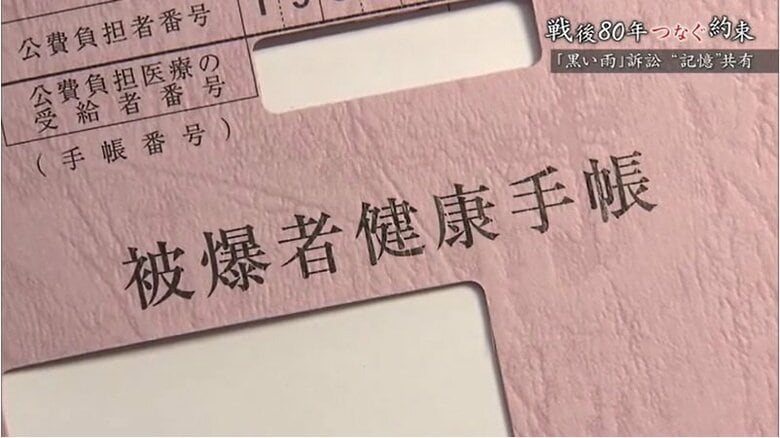 戦後80年 つなぐ約束
「黒い雨」訴訟 “記憶”共有
公費負担者番号
公費負担医療の
受給者番号
(手帳番号)
被爆者健康手帳